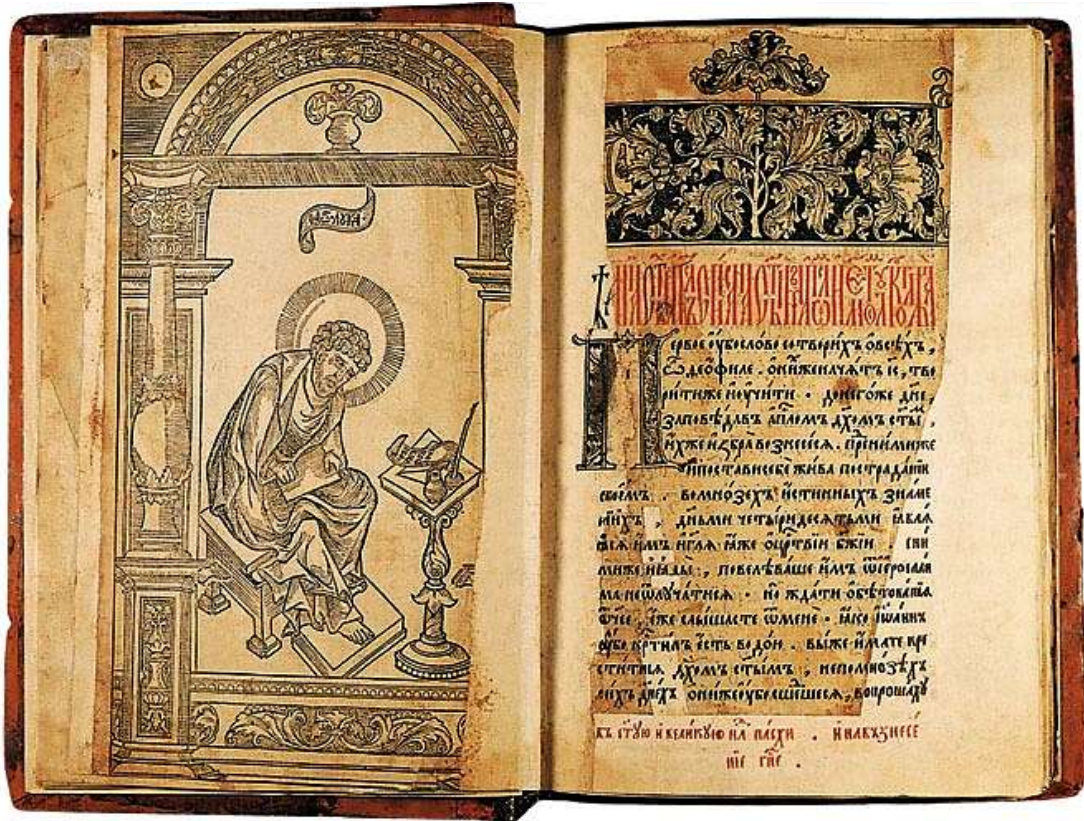 Первое оубо слово сотворихъ о всѣхъ,
ѽ ѳеофиле. о нихже начатъ іс, тво
рити же и оучити. до негоже дне,
заповѣдавъ апⷭ҇ломъ дх҃омъ ст҃ы,
ихже избра вознесеся. пред ними же
и постави себе жива по страданіи
своемъ. во мнозехъ истинныхъ знаме
ніихъ, дньми четыридесятьми ꙗвлѧѧ
сѧ имъ, и гл҃ѧ ꙗже о црⷭ҇твіи бж҃іи. с ни
миже и ꙗды, повелѣваше имъ ѿ іеросали
ма не ѿлучатисѧ. но ждати обѣтованіѧ
ѡч҃ее, еже слышасте ѿ мене. ꙗко іѡаннъ
оубо крⷭ҇тилъ есть водою. вы же имате кре
ститисѧ дх҃омъ ст҃ымъ, не по мнозѣхъ
сихъ днехъ они же оубо сшедшеесѧ, вопрошахꙋ
въ ст҃ую и великую нл҃ѧ пасхи. и на възнесе
ніе гн҃е.